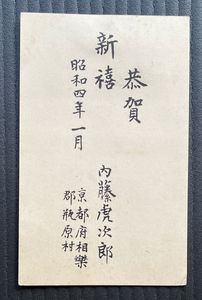 恭賀
新禧
昭和四年一月
内藤虎次郎
京都府相樂
郡瓶原村